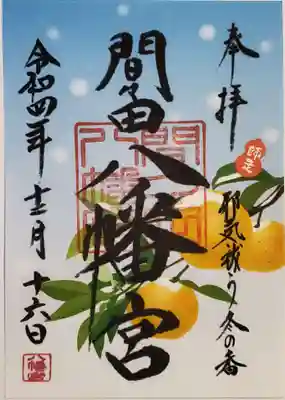 奉拝
師走
邪気祓う冬の香
間々田八幡宮
令和四年十二月十六日